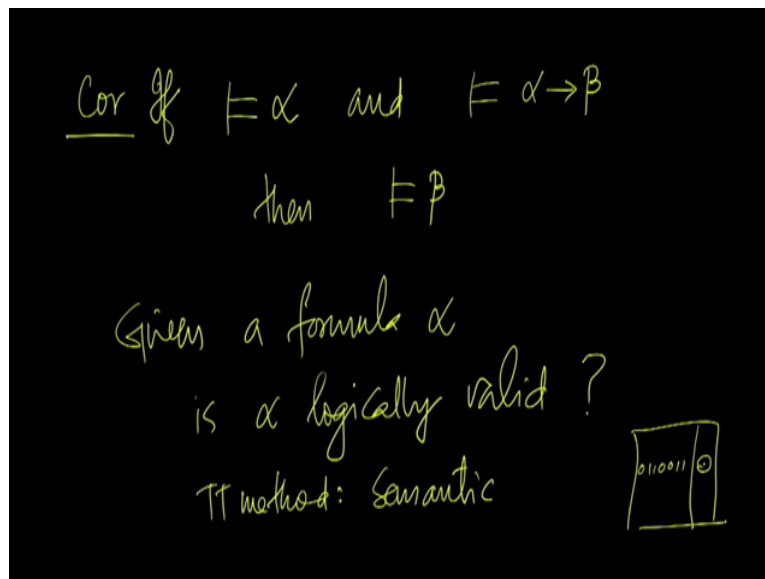 Cor If ⊨ α and ⊨ α→β
then ⊨ β
Given a formula α
is α logically valid ?
TT method: Semantic
0110011